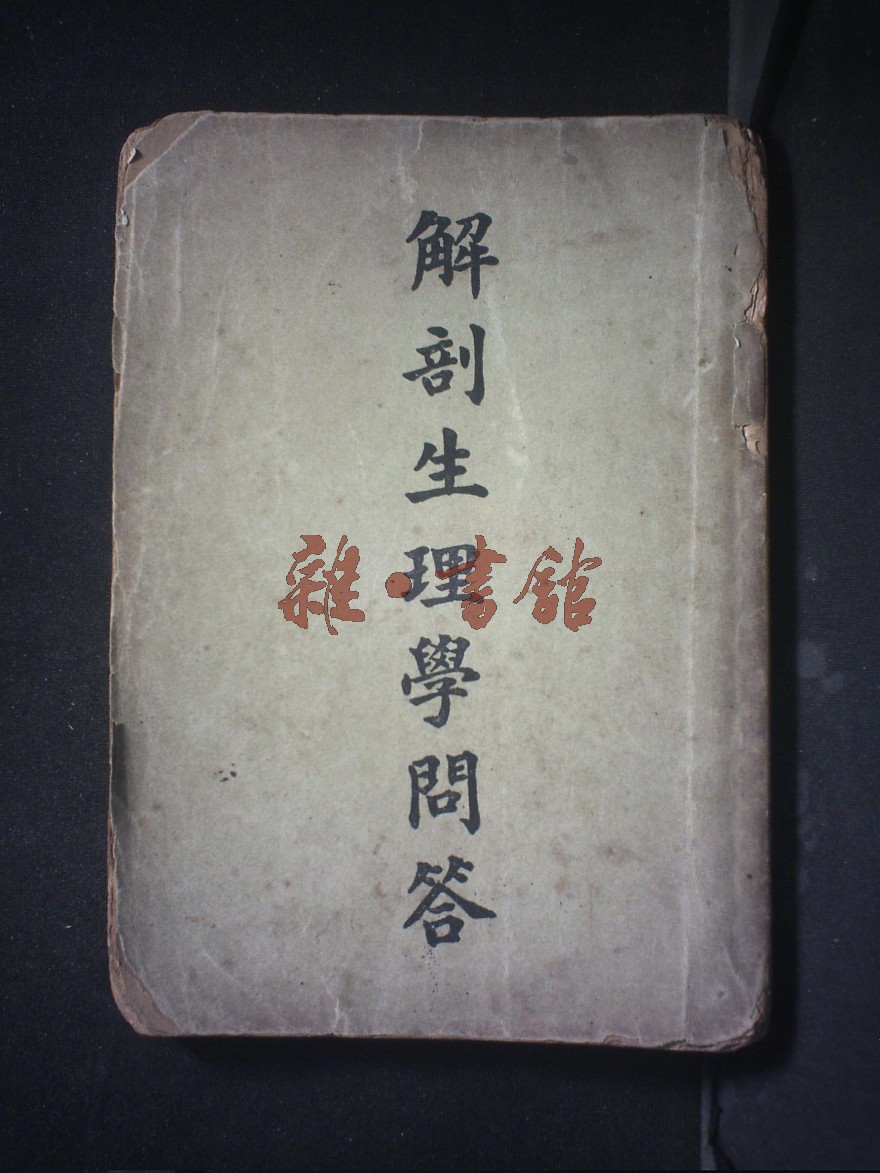 解剖生理學問答
雜·書館